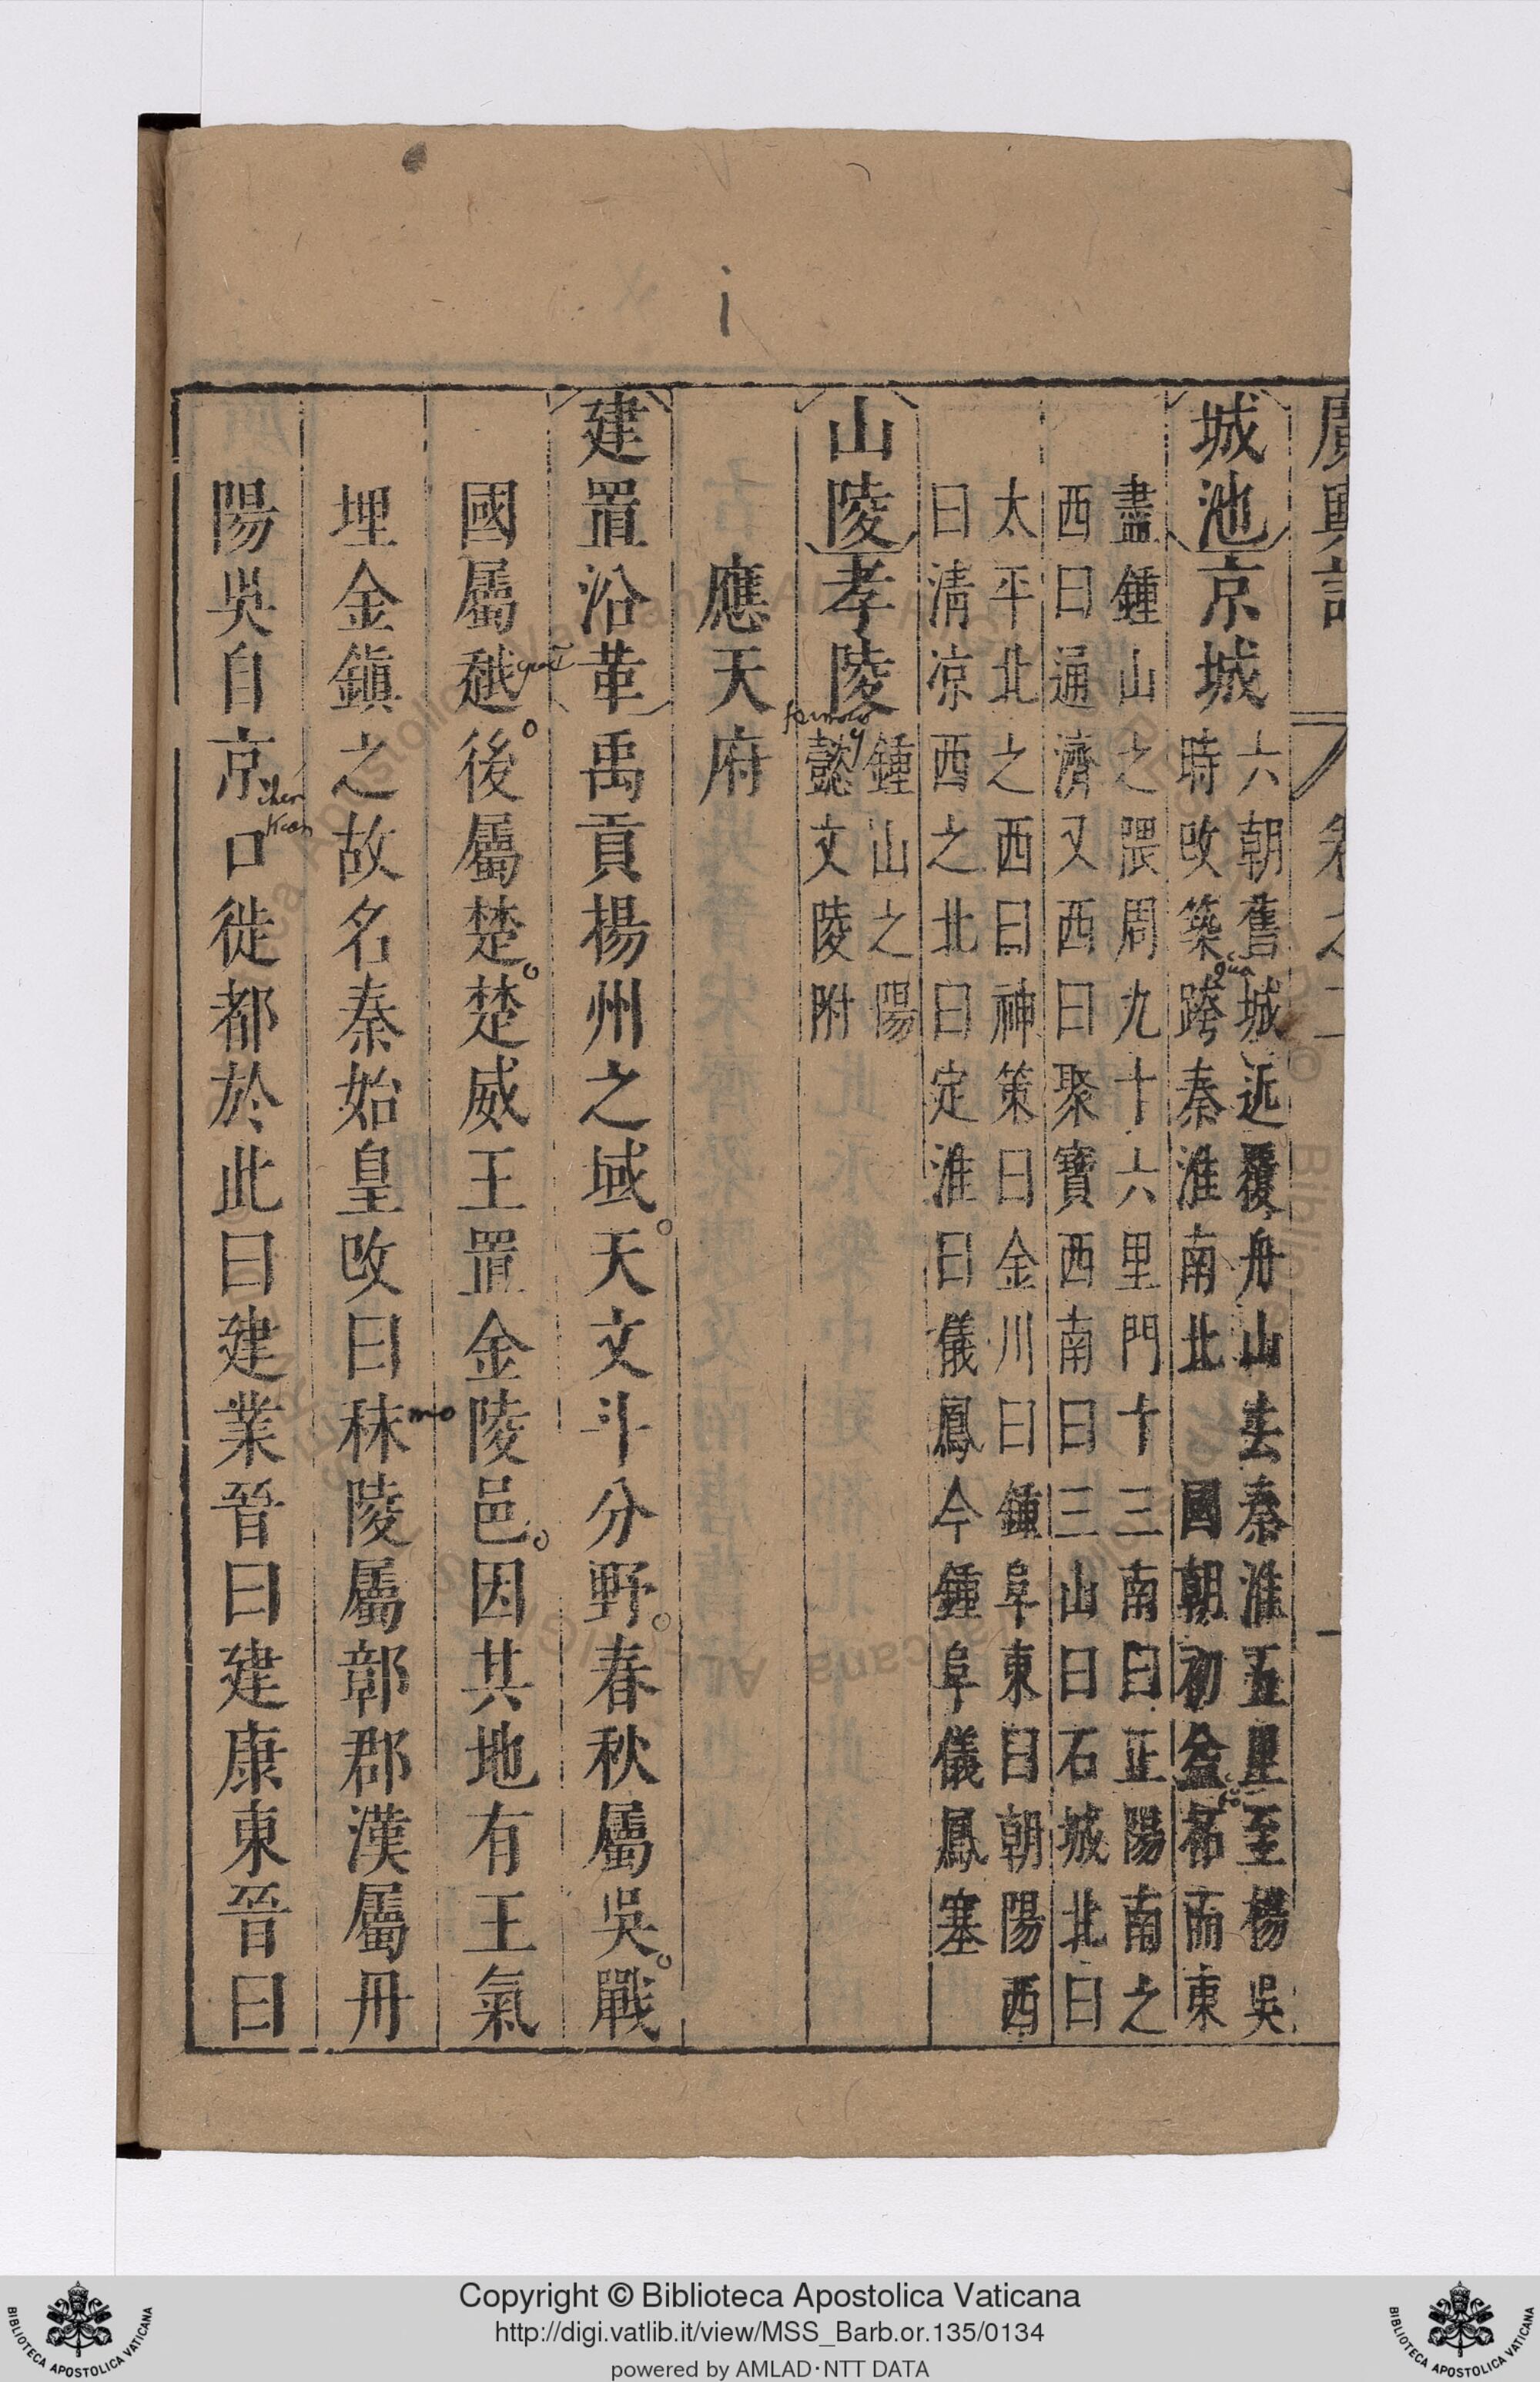 i
城池京城六朝舊城近覆舟山去秦淮五里至楊吳
時改築跨秦淮南北 國朝初益拓而東
盡鍾山之隈周九十六里門十三南曰正陽南之
西曰通濟又西曰聚寶西南曰三山曰石城北曰
太平北之西曰神策曰金川曰鍾阜東曰朝陽西
曰清凉西之北曰定淮曰儀鳳今鍾阜儀鳳塞
山陵孝陵鍾山之陽
懿文陵附
應天府
建置沿革禹貢楊州之域天文斗分野春秋屬吳戰
國屬越後屬楚楚威王置金陵邑因其地有王氣
埋金鎮之故名秦始皇改曰秣陵屬鄣郡漢屬丹
陽吳自京口徙都於此曰建業晉曰建康東晉曰
gua
mo
Copyright © Biblioteca Apostolica Vaticana
http://digi.vatlib.it/view/MSS_Barb.or.135/0134
powered by AMLAD·NTT DATA
BIBLIOTECA APOSTOLICA VATICANA
BIBLIOTECA APOSTOLICA VATICANA